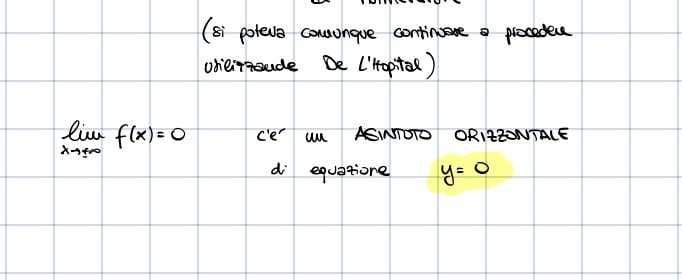 (si poteva comunque continuare a procedere
utilizzando De L'Hopital)
lim f(x) = 0 c'è un ASINTOTO ORIZZONTALE
x→±∞
di equazione y = 0